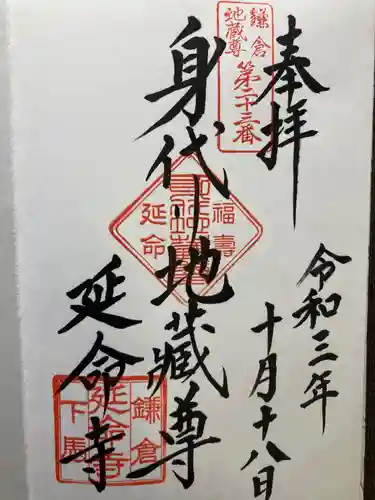 奉拝
鎌倉
地蔵尊
第二十三番
令和三年
十月十八日
身代り地蔵尊
福壽
延命
延命寺
鎌倉
延命寺
下馬